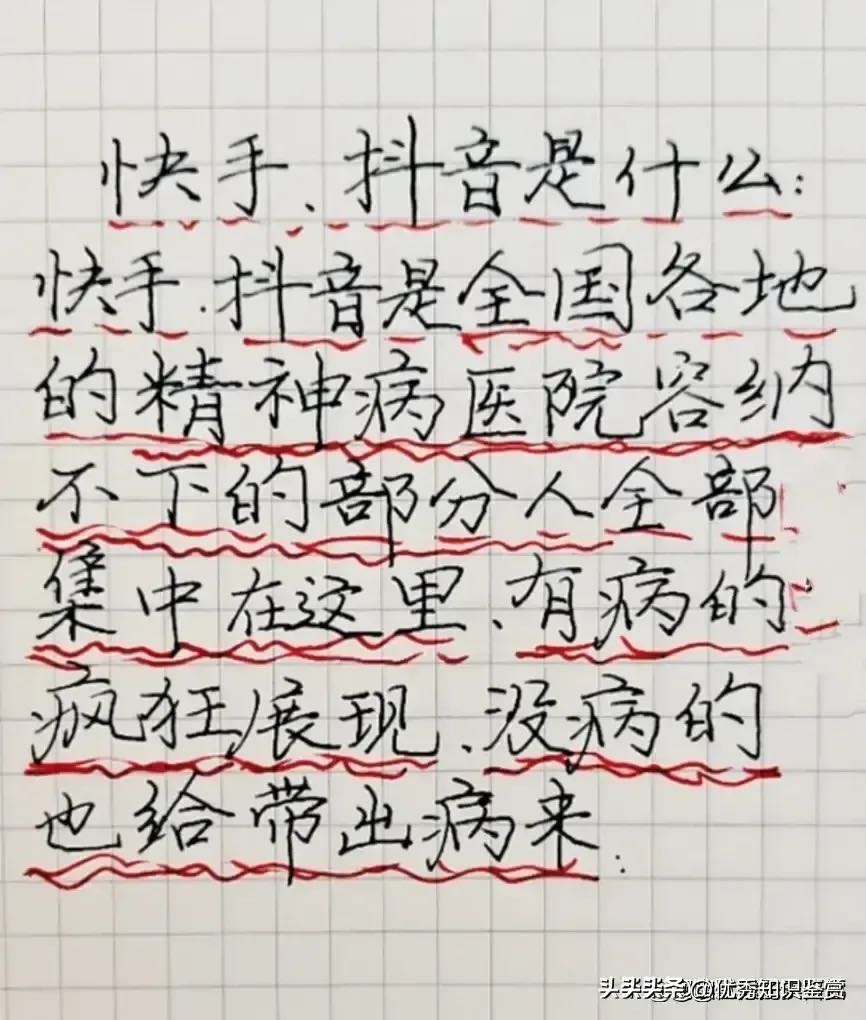 快手、抖音是什么:
快手、抖音是全国各地
的精神病医院容纳
不下的部分人全部
集中在这里、有病的
疯狂展现、没病的
也给带出病来.
头条 @优秀知识鉴赏